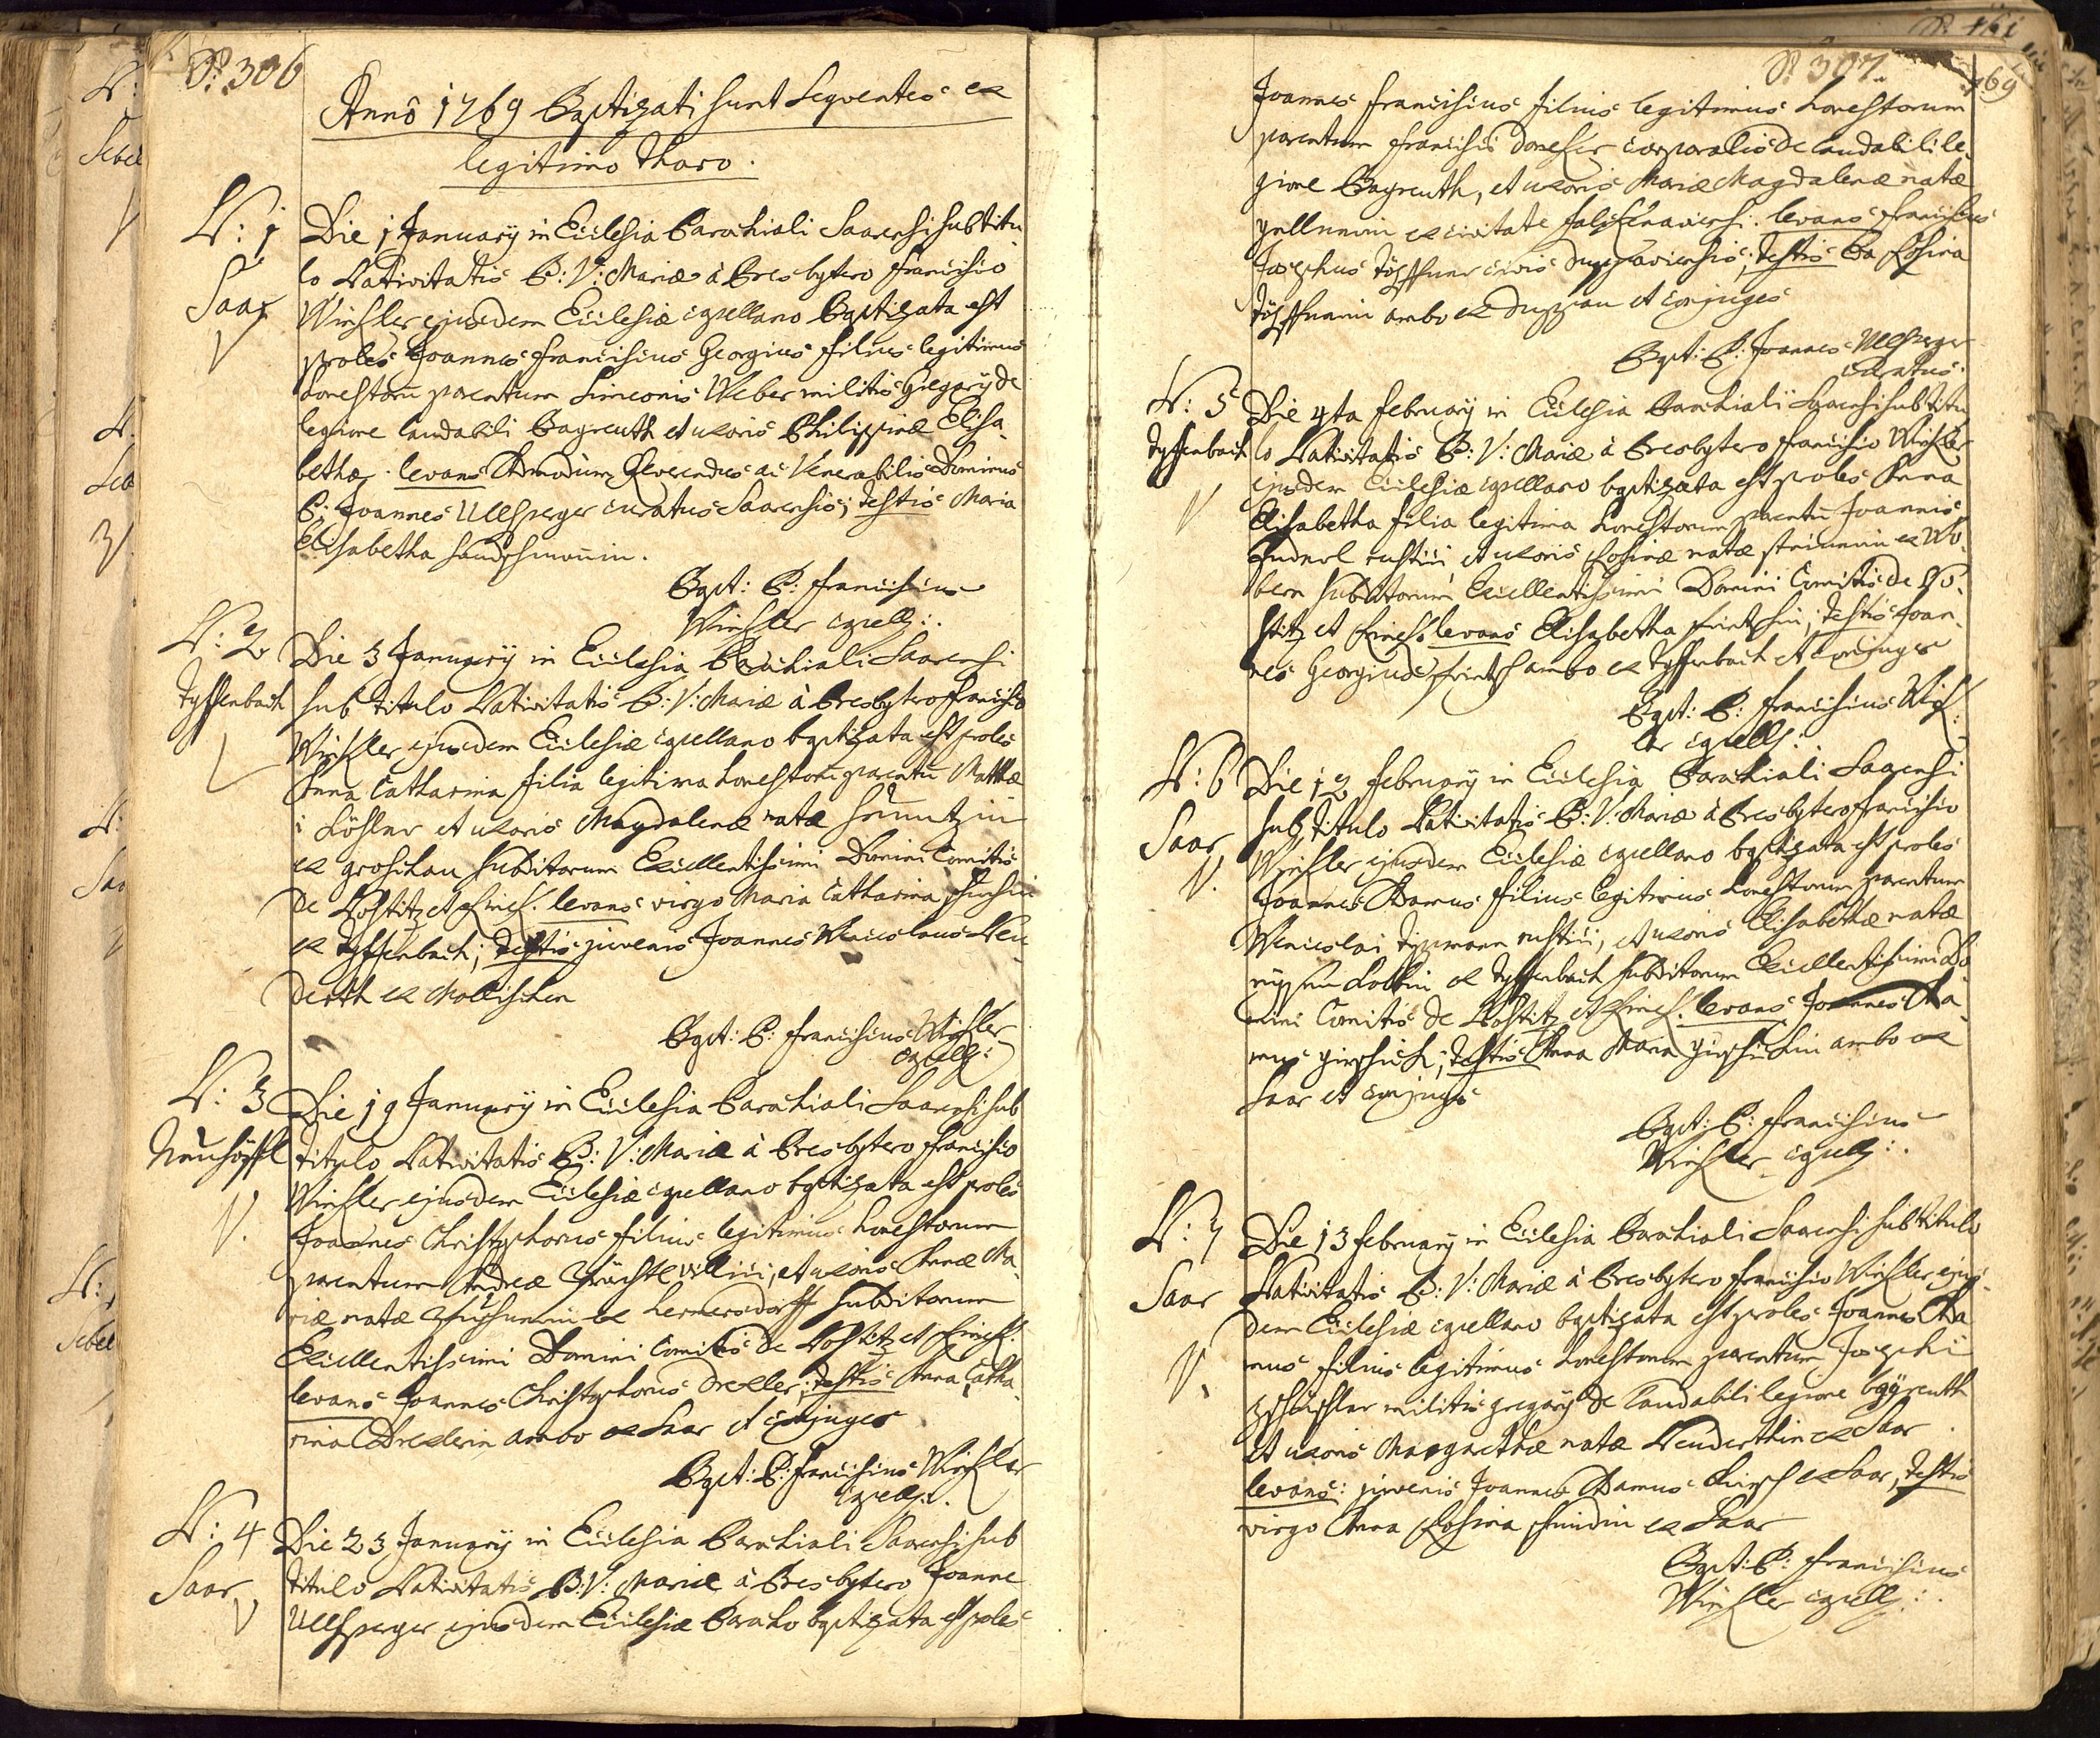 P. 306
Anno 1769 Baptizati sunt Sequentes ex
legitimo tharo.
N: 1
Saar
Die 1 January in Ecclesia Parochiali Saarensi sub titu
lo Nativitatis B: V: Mariæ à Presbytero Francisco
Winkler ejusdem Ecclesiæ capellano baptizata est
proles Joannes Franciscus Georgius filius legitimus
honestorū parentum Simeonis Weber militis Gregarÿ de
legione laudabili Bayreuth et uxoris Philippinæ Elisa-
bethæ. levans Admodum Reverendus ac Venerabilis Dominus
P. Joannes Ullsperger curatus Saarensis; testis Maria
Elisabetha
Bapt: P: Franciscus
Winkler capell:.
N: 2
Tyssenbach
Die 3 January in Ecclesia Parochiali Saarensi
sub titulo Nativitatis B: V: Mariæ à Presbytero Francisco
Winkler ejusdem Ecclesiæ capellano baptizata est proles
Anna Catharina filia legitima honestorū parentū Matthæ-
i Löhler et uxoris Magdalenæ natæ
ex Groschau subditorum Excellentissimi Domini Comitis
de Nostitz et Rinek. levans virgo Maria Catharina
ex Tyssenbach; testis juvenis Joannes Wenceslaus Neu-
derth ex Mollischen
Bapt: P: Franciscus Winkler
capell:
N: 3
Neuhöffl
Die 19 January in Ecclesia Parochiali Saarensi sub
titulo Nativitatis B: V: Mariæ à Presbytero Francisco
Winkler ejusdem Ecclesiæ capellano baptizata est proles
Joannes Christophorus filius legitimus honestorum
parentum Andreæ villici, et uxoris Annæ Ma-
riæ natæ ex Lermersdorff subditorum
Excellentissimi Domini Comitis de Nostitz et Rinek.
levans Joannes Christophorus Drexler; testis Anna Catha-
rina Drexlerin ambo ex Saar et conjuges
Bapt: P: Franciscus Winkler
capell:.
N: 4
Saar
Die 23 January in Ecclesia Parochiali Saarensi sub
titulo Nativitatis B: V: Mariæ à Presbytero Joanne
Ullsperger ejusdem Ecclesiæ Parocho baptizata est proles
P. 307.
Joannes Franciscus filius legitimus honestorum
parentum Francisci corporalis de laudabili le-
gione Bayreuth, et uxoris Mariæ Magdalenæ natæ
ex civitate levans Franciscus
Josephus Töpffner civis Duppaviensis; testis Rosina
Töpffnerin ambo ex Duppau et conjuges
Bapt: P: Joannes Ullsperger
curatus.
N: 5
Tyssenbach
Die 4ta February in Ecclesia Parochiali Saarensi sub titu-
lo Nativitatis B: V: Mariæ à Presbytero Francisco Winkler
ejusdem Ecclesiæ capellano baptizata est proles Anna
Elisabetha filia legitima honestorum parentū Joannis
rustici et uxoris Rosinæ natæ ex Wo-
bern subditorum Excellentissimi Domini Comitis de No-
stitz et Rinek levans Elisabetha; testis Joan-
nes Georgius ambo ex Tyssenbach et conjuges
Bapt: P: Franciscus Wink-
ler capell:
N: 6
Saar
Die 12 February in Ecclesia Parochiali Saarensi
sub titulo Nativitatis B: V: Mariæ à Presbytero Francisco
Winkler ejusdem Ecclesiæ capellano baptizata est proles
Joannes Adamus filius legitimus honestorum parentum
Wenceslai rustici, et uxoris Elisabethæ natæ
ex Tyssenbach subditorum Excellentissimi Do-
mini Comitis de Nostitz et Rinek. levans Joannes Ada-
mus; testis Anna Maria ambo ex
Saar et conjuges
Bapt: P: Franciscus
Winkler capell:.
N: 7
Saar
Die 13 February in Ecclesia Parochiali Saarensi sub titulo
Nativitatis B: V: Mariæ à Presbytero Francisco Winkler ejus-
dem Ecclesiæ capellano baptizata est proles Joannes Ada-
mus filius legitimus honestorum parentum Josephi
militis gregarÿ de laudabili legione baÿreuth
et uxoris Margarethæ natæ Neuderthin ex Saar
levans: juvenis Joannes Adamus ex Saar, testis
virgo Anna Rosina ex Saar
Bapt: P: Franciscus
Winkler capell:.